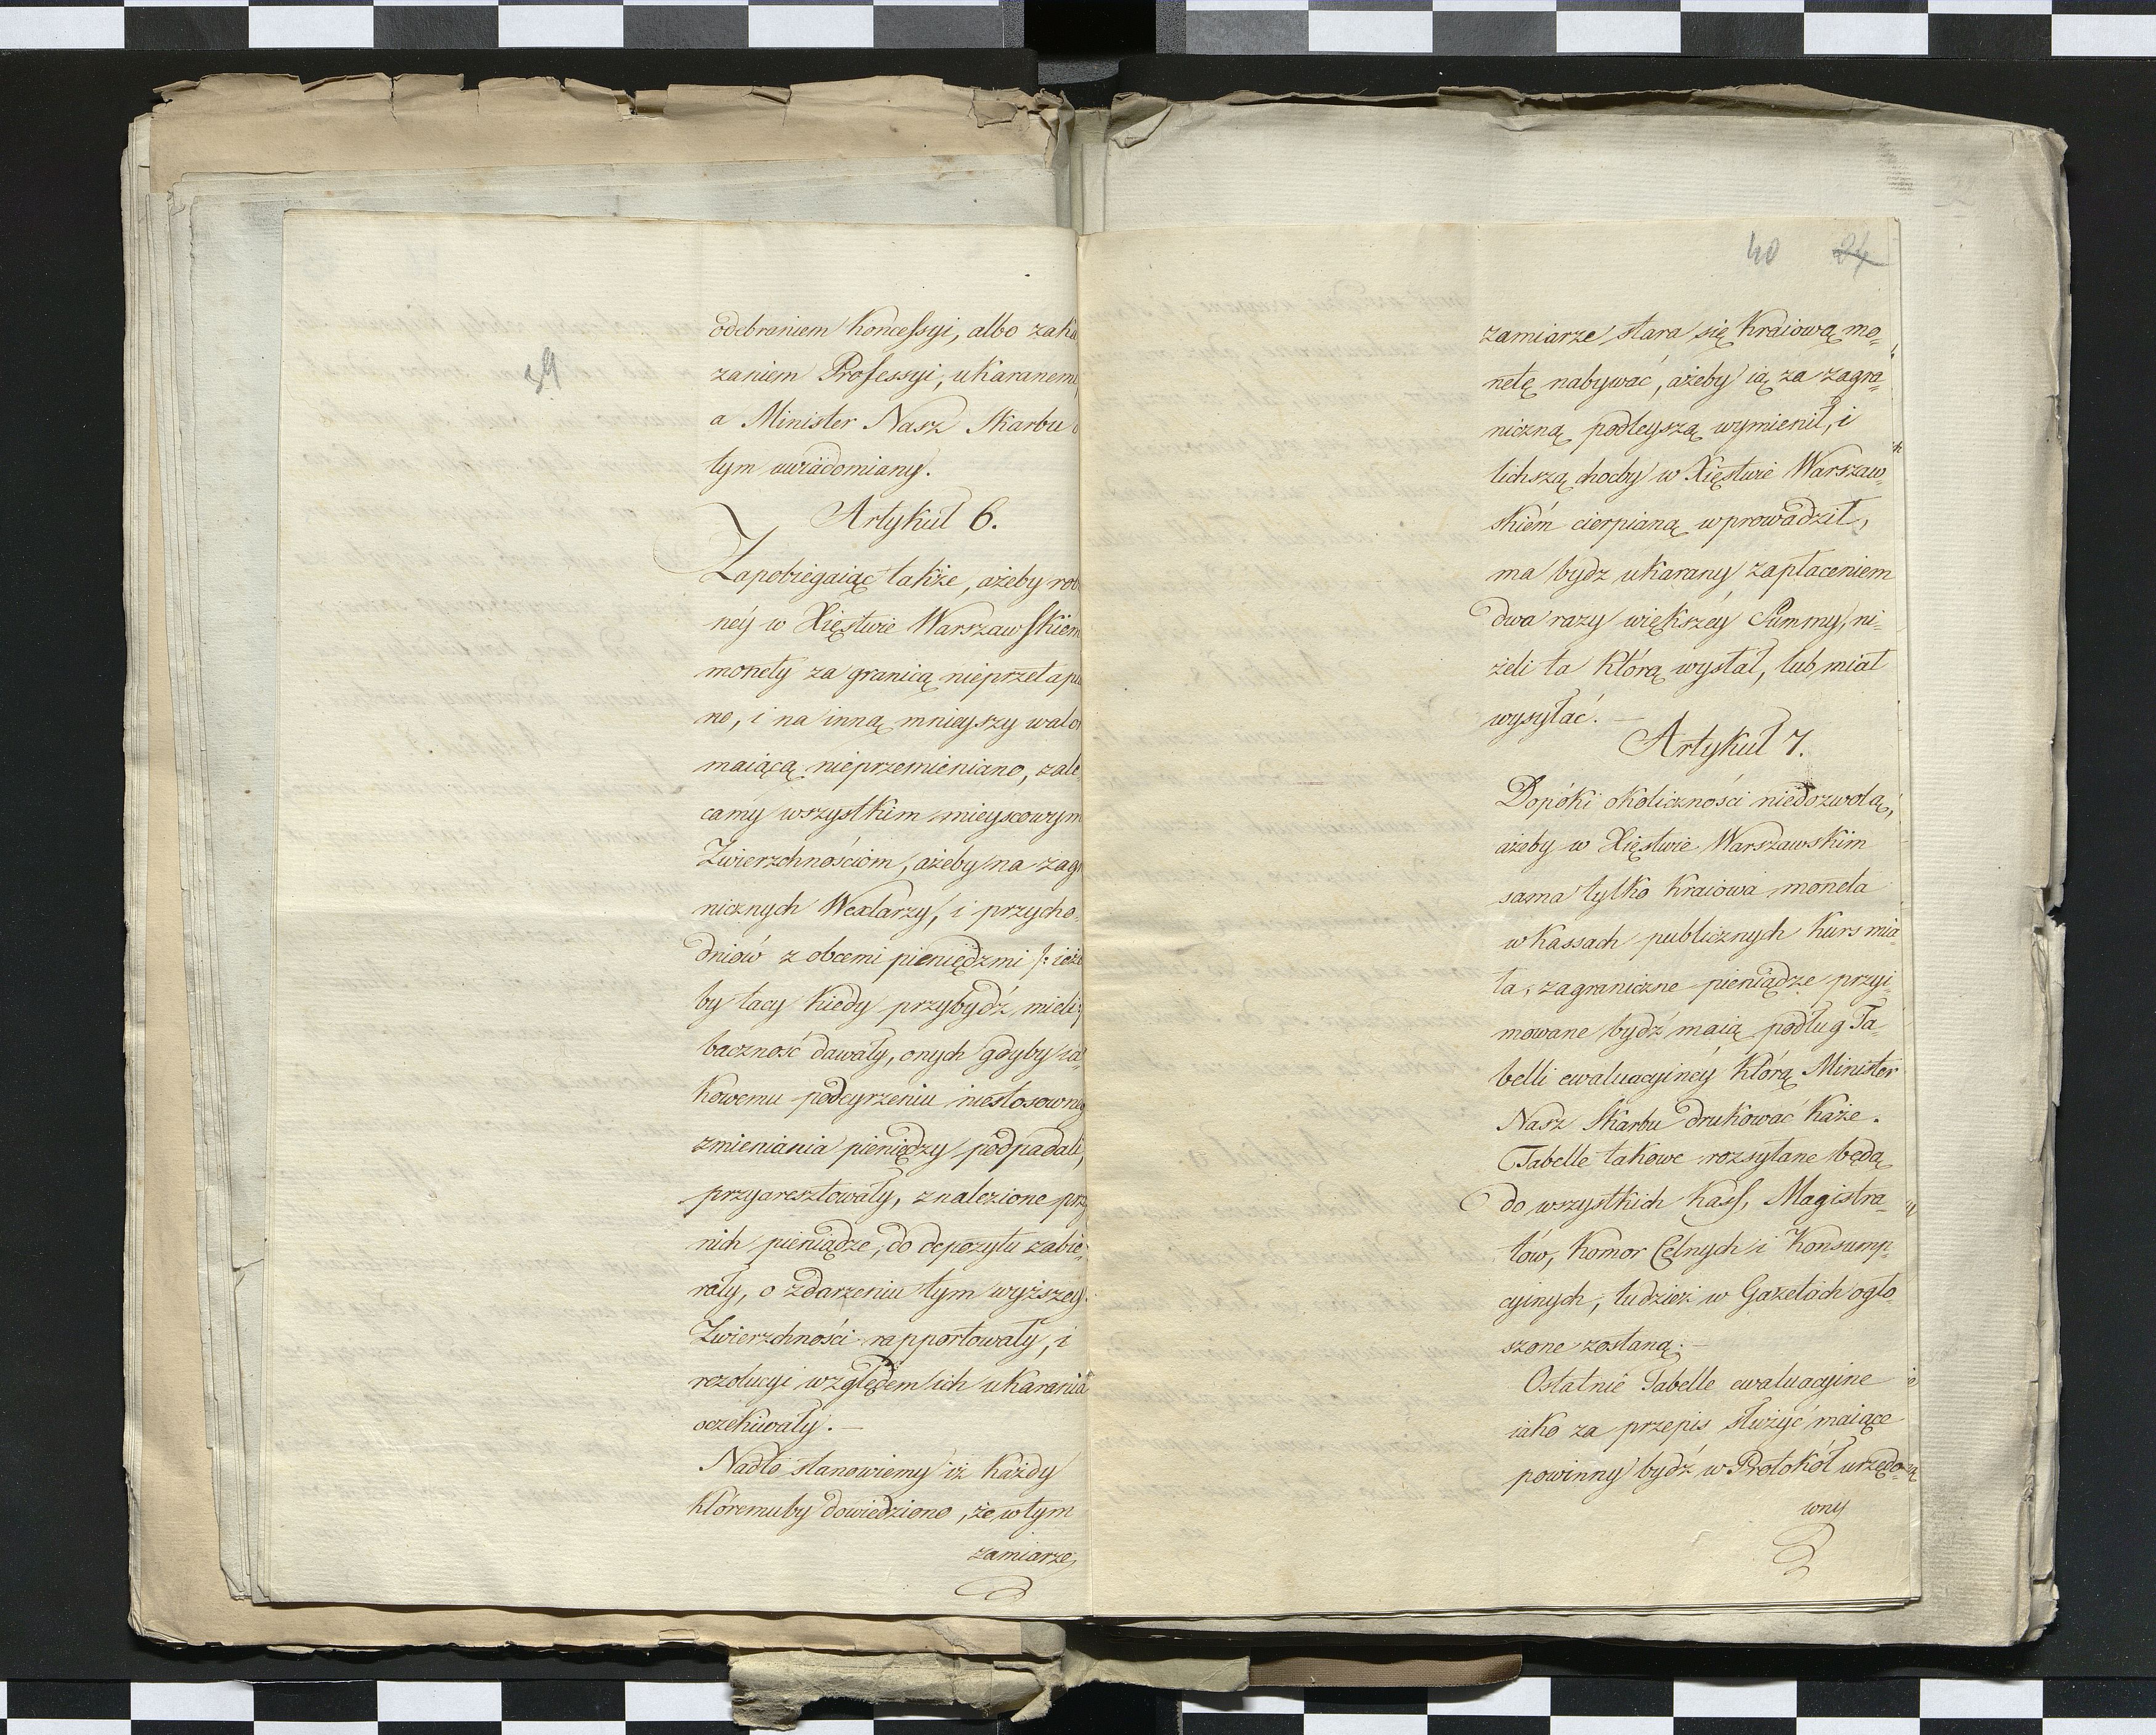 39
odebraniem Koncessyi, albo zaka
zaniem Professyi, ukaranem
a Minister Nasz Skarbu o
tym uwiadomiany.
Artykuł 6.
Zapobiegaiąc także, ażeby rob
néy w Xięstwie Warszawskiem
monety za granicą nieprzetapia
no, i na inną mnieyszy walor
maiącą nieprzemieniano, zale
camy wszystkim mieyscowym
Zwierzchnościom, ażeby na zagr
nicznych Wexlarzy, i przycho-
dniów z obcemi pieniędzmi /: ieże
by tacy kiedy przybydź mieli :/
baczność dawały, onych gdyby ia-
kowemu podeyrzeniu niestosowneg
zmieniania pieniędzy podpadali,
przyaresztowały, znalezione przy
nich pieniądze, do depozytu zabie-
rały, o zdarzeniu tym wyższey
Zwierzchności rapportowały, i
rezolucyi względem ich ukarania
oczekiwały. —
Nadto stanowiemy iż każdy
któremuby dowiedziono, że w tym
zamiarze,
40 24
zamiarze stara się Kraiową mo-
netę nabywać, ażeby ią za zagra-
niczną podleyszą wymienił, i
lichszą choćby w Xięstwie Warszaw-
skiém cierpianą wprowadził,
ma bydz ukarany zapłaceniem
dwa razy większéy Summy, ni-
żeli ta którą wysłał, lub miał
wysyłać. —
Artykuł 7.
Dopóki okoliczności niedozwolą,
ażeby w Xięstwie Warszawskim
sama tylko kraiowa moneta
w Kassach publicznych kurs mia-
ła, zagraniczne pieniądze przyi-
mowane bydź maią podług Ta-
belli ewaluacyinéy którą Minister
Nasz Skarbu drukować każe.
Tabelle takowe rozsyłane będą
do wszystkich Kass, Magistra-
tów, Komor Celnych i Konsump-
cyinych, tudzież w Gazetach ogło-
szone zostaną. —
Ostatnie Tabelle ewaluacyine
iako za przepis służyć maiące
powinny bydź w Protokół urzędo-
wny